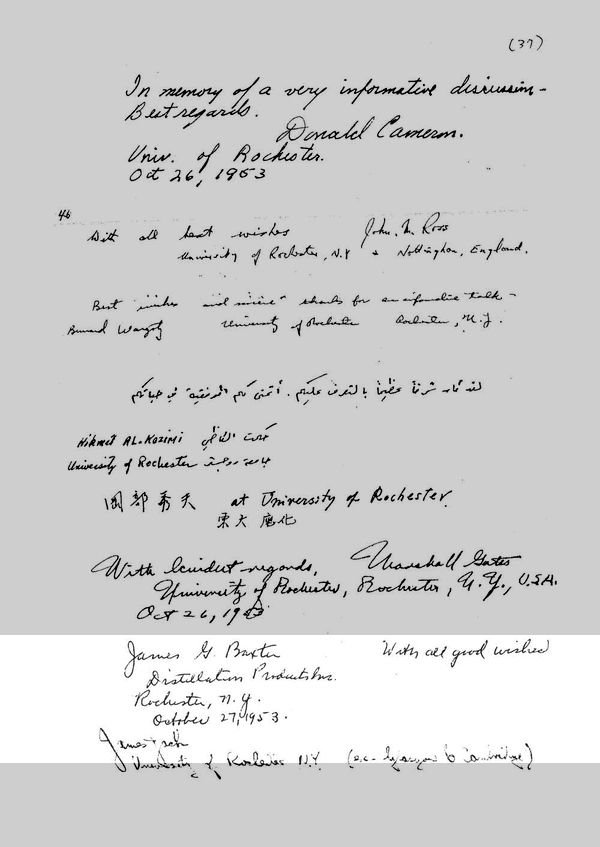 (37)
In memory of a very informative discussion -
Best regards.
Donald Cameron.
Univ. of Rochester.
Oct 26, 1953
46
With all best wishes John. M. Ross
University of Rochester, N.Y & Nottingham, England.
Best wishes and sincere thanks for an informative talk -
University of Rochester Rochester, N.Y.
لقد نلت شرفا عظيما بالتعرف عليكم. أتمنى لكم الموفقية في حياتكم
Hikmet AL-Kozimi حكمت
University of Rochester جامعة
岡部 夫 at University of Rochester.
東大 應化
With kindest regards, Marshall Gates
University of Rochester, Rochester, N.Y., U.S.A.
Oct 26, 1953
James G. Baxter With all good wishes
Distillation Products Inc.
Rochester, N.Y.
October 27, 1953.
James
University of Rochester N.Y. (ex-Glasgow & Cambridge)